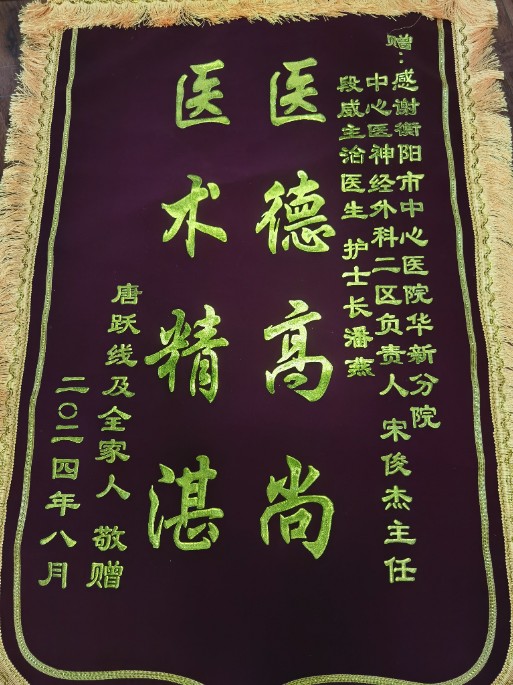 赠：感谢衡阳市中心医院华新分院
中心医神经外科二区负责人 宋俊杰主任
段威主治医生 护士长潘燕
医德高尚
医术精湛
唐跃线及全家人 敬赠
二〇二四年八月